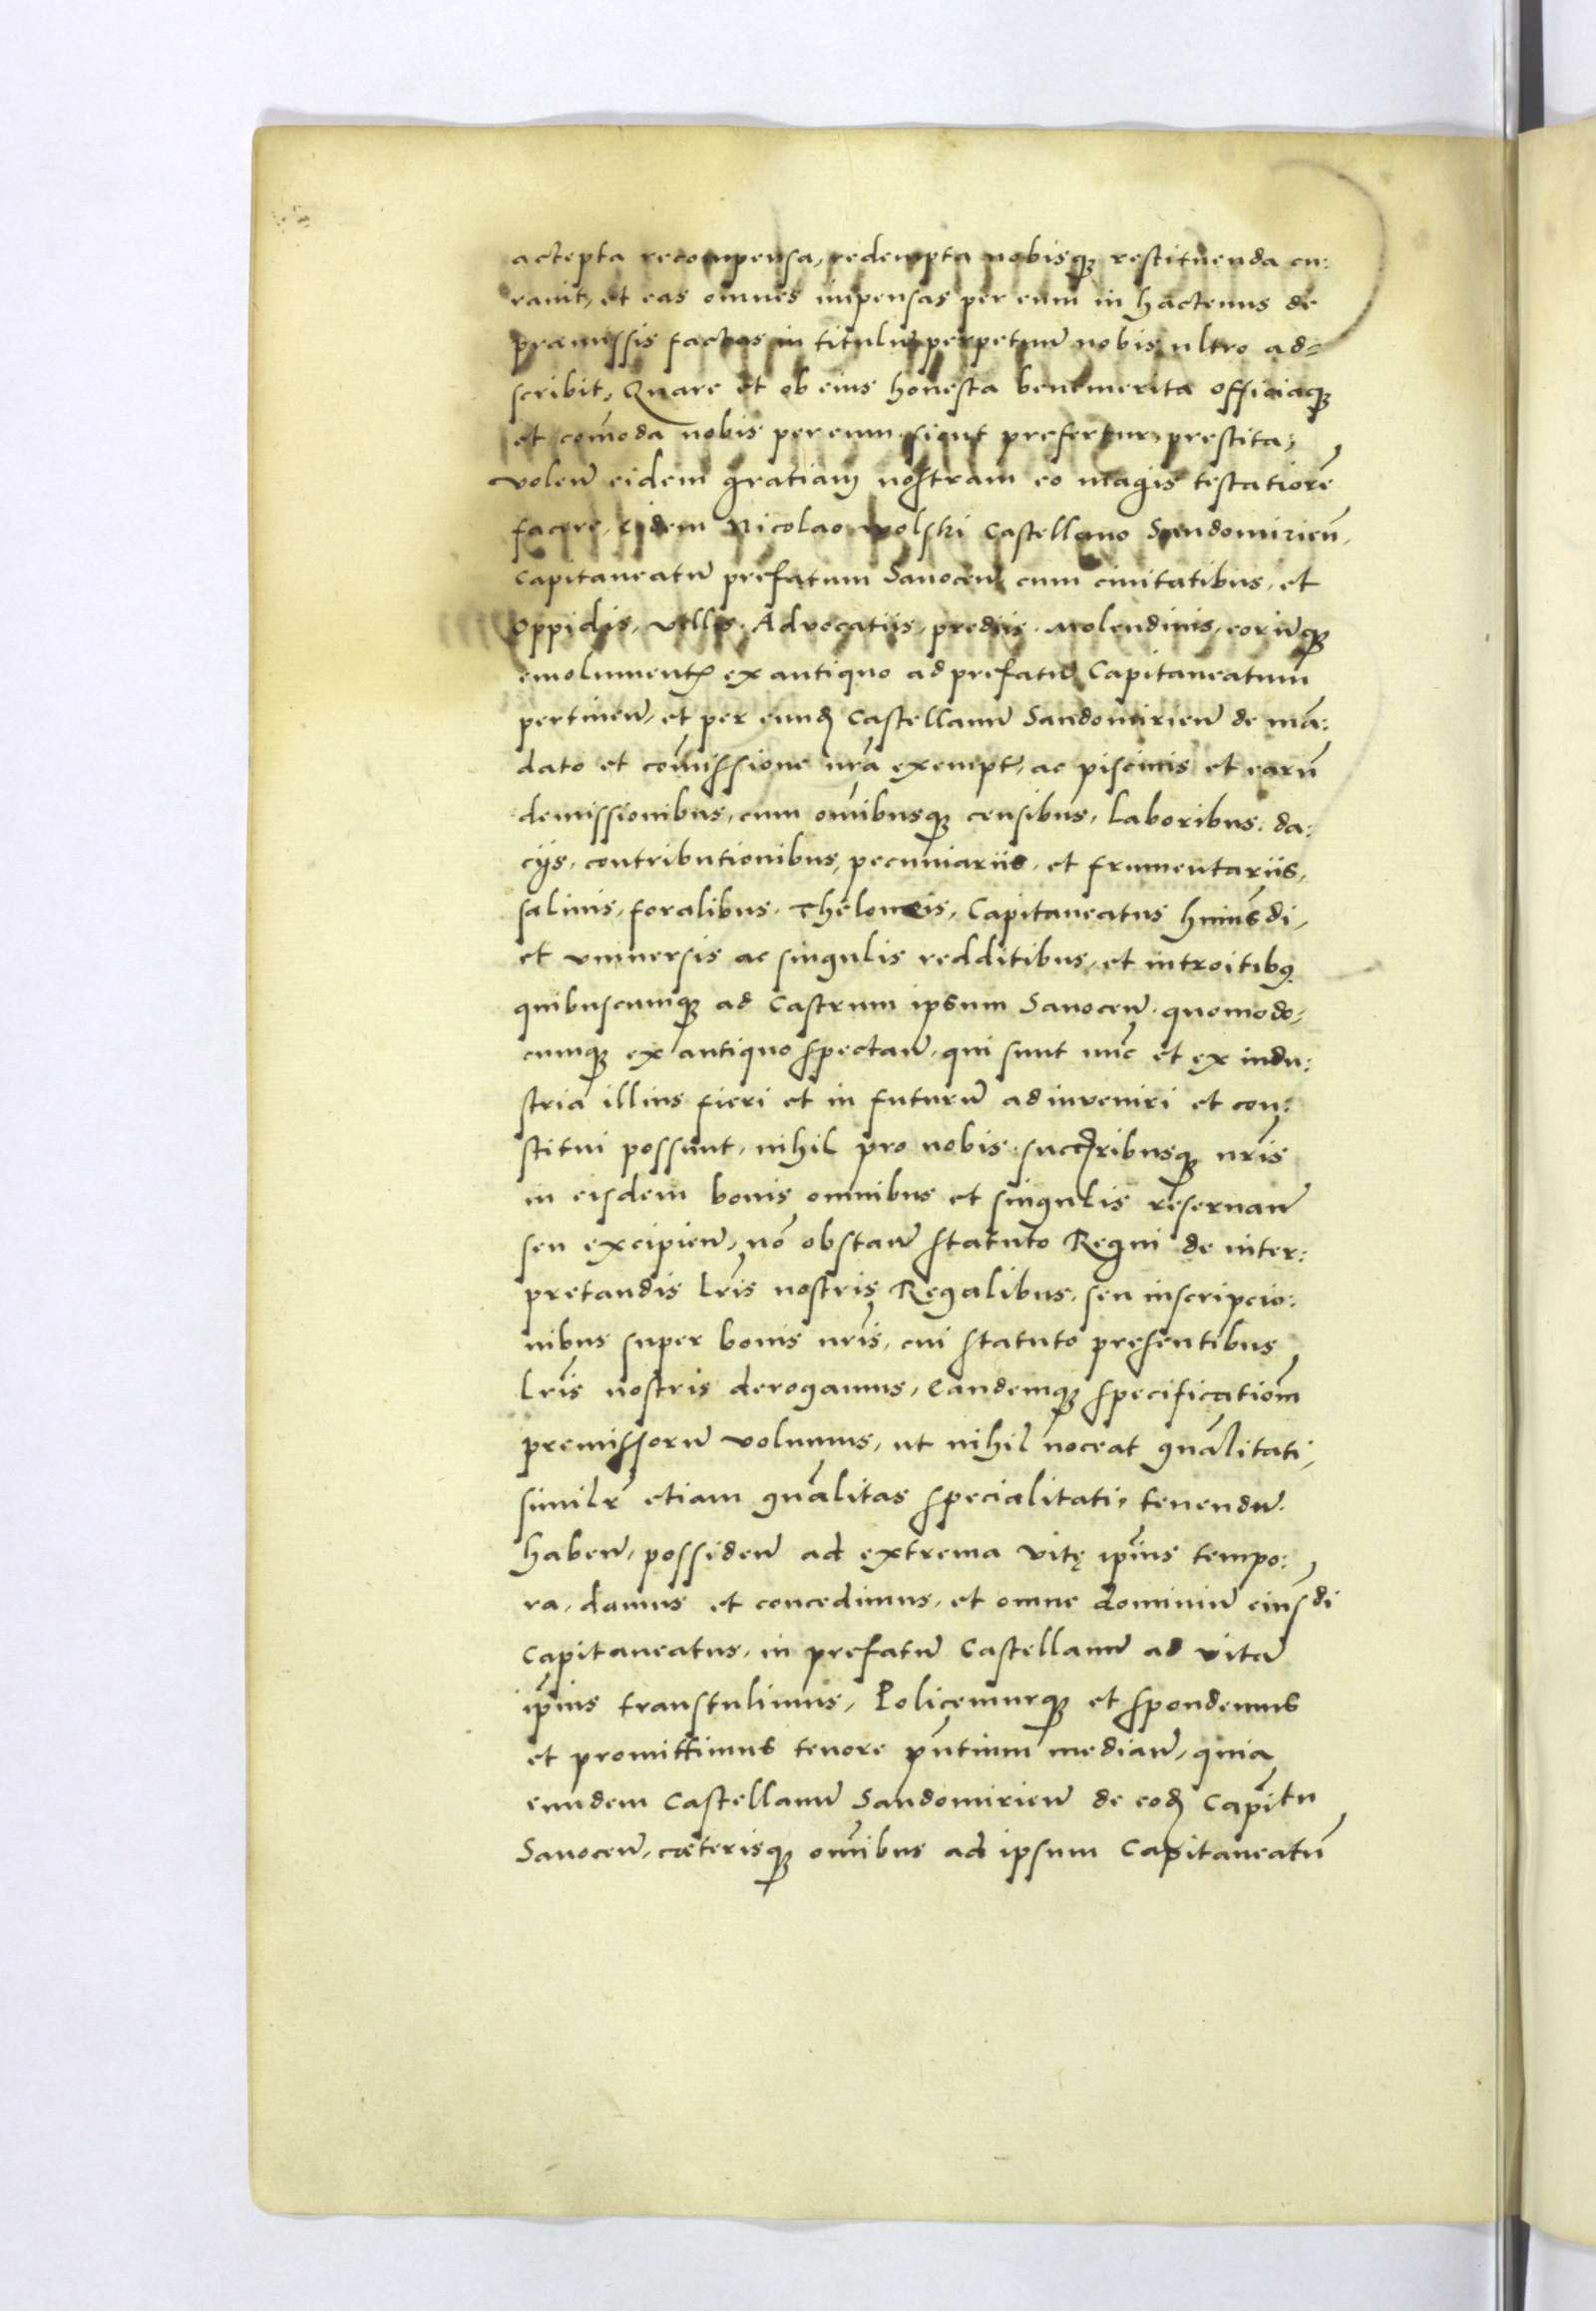 actepta recompensa, redempta nobisq; restituenda cu:
rauit, et eas omnes impensas per eum in hactenus de
praemissis factas in titulū perpetuū nobis ultro ad=
scribit, Quare et ob eius honesta benemerita officiaq;
et com̄oda nobis per eum sicut prefertur prestita,
volen̄ eidem gratiam nostram eo magis testatiorē
facere, eidem Nicolao wolski Castellano Sandomirien̄,
Capitaneatū prefatum Sanocen̄ cum ciuitatibus, et
oppidis, villis, Advocatiis, prediis, molendinis, eorūq;
emolument̄ ex antiquo ad prefatū Capitaneatum
pertinen̄, et per eund̄ Castellanū Sandomirien̄ de mā:
dato et com̄issione nr̄a exempt̄, ac piscinis et earū
demissionibus, cum om̄ibusq; censibus, laboribus, da:
cijs, contributionibus, pecuniariis, et frumentariis,
salinis, foralibus, Theloneis, Capitaneatus huiusdi,
et vniuersis ac singulis redditibus, et introitibꝰ
quibuscumq; ad Castrum ipsum Sanocen̄, quomodo,
cumq; ex antiquo spectan̄, qui sunt nūc et ex indu:
stria illius fieri et in futurū adinveniri et con:
stitui possunt, nihil pro nobis succ̄ribusq; nr̄is
in eisdem bonis omnibus et singulis reseruan̄
seu excipien̄, nō obstan̄ statuto Regni de inter:
pretandis lr̄is nostris Regalibus, seu inscripcio:
nibus super bonis nr̄is, cui statuto presentibus
lr̄is nostris derogamus, eandemq; specificatiōm
premissorū volumus, ut nihil noceat gn̄alitati,
similr̄ etiam gn̄alitas specialitati, tenendū
haben̄, possiden̄ ad extrema vitę ip̄ius tempo:
ra, damus et concedimus, et omne dominiū eiusdi
Capitaneatus, in prefatū Castellanū ad vitā
ip̄ius transtulimus, Policemurq; et spondemus
et promittimus tenore pn̄tium median̄, quia
eundem Castellanū Sandomirien̄ de eod̄ Capītu
Sanocen̄, cęterisq; om̄ibus ad ipsum Capitaneatū